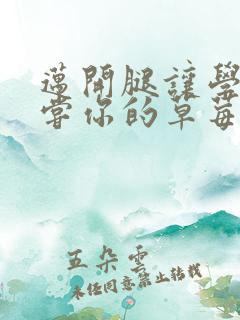 邁開腿讓學
嘗你的草莓
五朵雲
未經同意禁止轉載